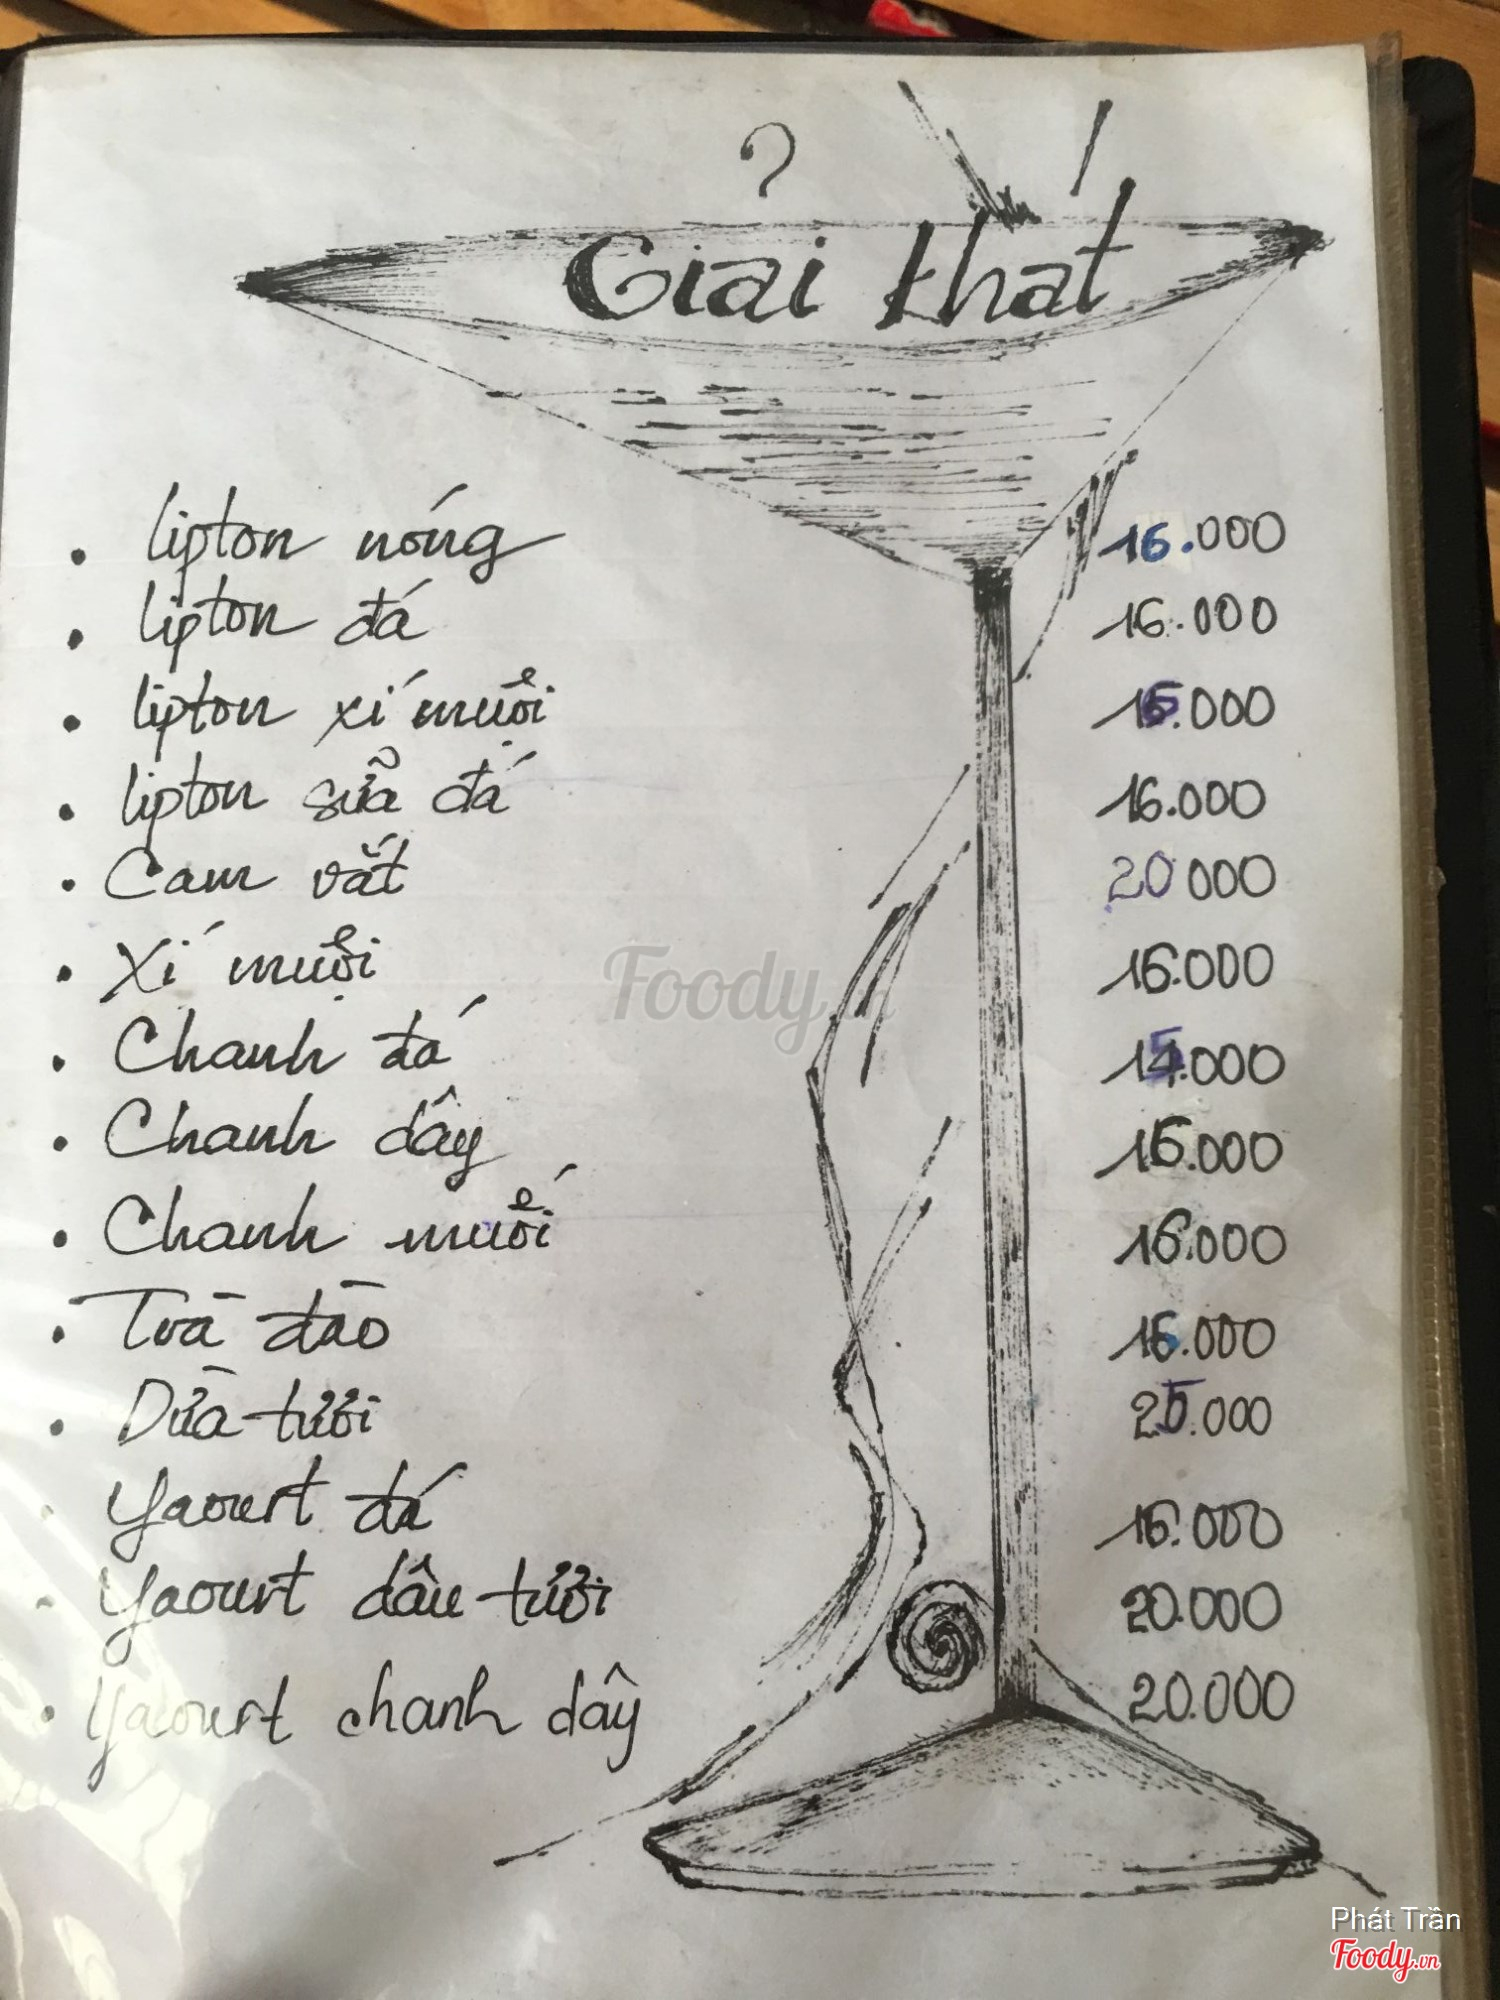 Giải khát
• lipton nóng 16.000
• lipton đá 16.000
• lipton xí muội 16.000
• lipton sữa đá 16.000
• Cam vắt 20 000
• Xí muội 16.000
• Chanh đá 15.000
• Chanh dây 16.000
• Chanh muối 16.000
• Trà đào 16.000
• Dừa tươi 25.000
• Yaourt đá 16.000
• Yaourt dâu tươi 20.000
• Yaourt chanh dây 20.000
Foody.vn
Phát Trần
Foody.vn